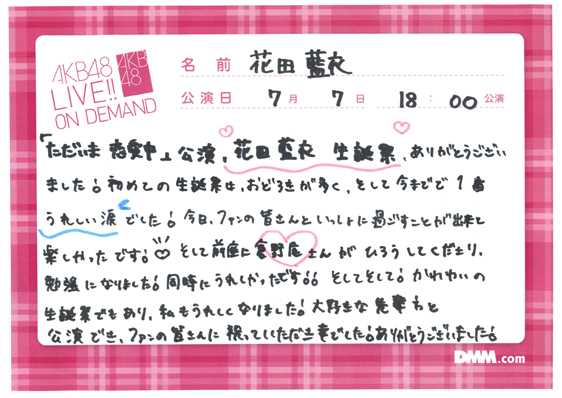 AKB48
LIVE!!
ON DEMAND
AKB
48
名前 花田 藍衣
公演日 7月 7日 18:00公演
「ただいま 恋愛中」公演、花田 藍衣 生誕祭、ありがとうござい
ました!初めての生誕祭は、おどろきが多く、そして今までで1番
うれしい涙でした!今日、ファンの皆さんといっしょに過ごすことが出来て
楽しかったです! そして前座に倉野尾さんが ひろうしてくださり、
勉強になりました!同時にうれしかったです!! そしてそして!
生誕祭でもあり、私もうれしくなりました!大好きな先輩方と
公演でき、ファンの皆さんに祝っていただき幸せでした!ありがとうございました!
DMM.com